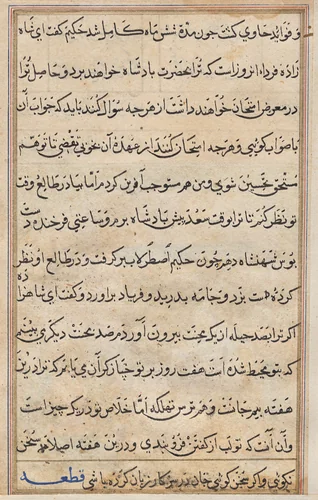 و فوائد حاوی کشت چون مدة شش ماه کامل شد حکیم گفت ای شاه
زاده فردا روز است که ترا بحضرت بادشاه خواهند برد و حاصل ترا
در معرض امتحان خواهند داشت از هرچه سوال کنند باید که جواب آن
باصواب گویی و هرچه امتحان کنند از عهدهٔ آن بخوبی تفصی تا تو هم
مستحق تحسین شوی و من هم مستوجب آفرین گردم اما بیا در طالع وقت
تو نظر کنم تا ترا وقت سعد پیش بادشاه برم و ساعتی فرخنده دست
بوس شهنشاه دهم چون حکیم اصطرلاب بر گرفت و در طالع او نظر
کرد دست بزد و جامه بدرید و فریاد براورد و گفت ای شاهزاده
اگر ترا بصد حیله از یک محنت بیرون آورد مرصد محنت دیگری بینم
که بتو محیط شده است هفت روز بر تو چنان گران می‌یابم که ترا درین
هفته بیم جانست و هم ترس تهلکه اما خلاص تو در یک چیز است
و آن آنست که تو لب از گفتن فرو بندی و درین هفته اصلا هیچ سخن
نگویی و اگر سخن گویی جان در سر کار زبان کرده باشی قطعه